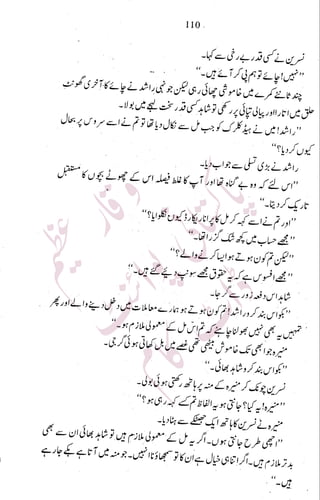 110
نسرین نے کسی قدر بے رخی سے کہا۔
"نہیں! چائے تو ہم پی کر آئے ہیں۔"
چند ثانئے کمرے میں خاموشی چھائی رہی لیکن جونہی راشد نے چائے کا آخری گھونٹ
حلق میں اتارا اور پیالی تپائی پر رکھی تو شاہد کسی قدر سخت لہجے میں بولا۔
"راشد! میں نے ہیڈ کلرک کو جب مل سے نکال دیا تھا تو تم نے اسے سروس پر بحال
کیوں کر دیا؟"
راشد نے بڑی تسلی سے جواب دیا۔
"اس لئے کہ وہ بے گناہ تھا اور آپ کا غلط فیصلہ اس کے چھوٹے بچوں کا مستقبل
تاریک کر دیتا۔"
"اور تم نے اسے کہہ کر مل کا پرانا ریکارڈ کیوں نکلوایا؟"
"مجھے حساب میں کچھ شک گزرا تھا۔"
"لیکن تم کون ہوتے ہو ایسا کرنے والے؟"
"مجھے افسوس ہے کہ یہ حقوق مجھے سونپ دیئے گئے ہیں۔"
شاہد اس دفعہ زور سے گرجا۔
"بکواس بند کرو راشد! تم کون ہوتے ہو ہمارے معاملات میں دخل دینے والے اور پھر
تمہیں یہ بھی نہیں بھولنا چاہئے کہ تم اس مل کے معمولی ملازم ہو۔"
منیرہ جو ابھی تک خاموش بیٹھی تھی غصے میں بل کھاتی ہوئی گرجی۔
"بکواس بند کرو شاہد بھائی۔"
نسرین چونک کر منیرہ کے منہ پر ہاتھ رکھتی ہوئی بولی۔
"منیرہ! یہ کیا؟ جانتی ہو یہ الفاظ تم کسے کہہ رہی ہو؟"
منیرہ نے نسرین کا ہاتھ ایک جھٹکے سے ہٹا دیا۔
"اچھی طرح جانتی ہوں۔ اگر یہ مل کے معمولی ملازم ہیں تو شاہد بھائی ان سے بھی
بدتر ملازم ہیں۔ اگر اتنا ہی خیال ہے ان کا تو سمجھاؤ نا انہیں۔ جو منہ میں آتا ہے بکے جا رہے
پاکستان
وقار عظیم